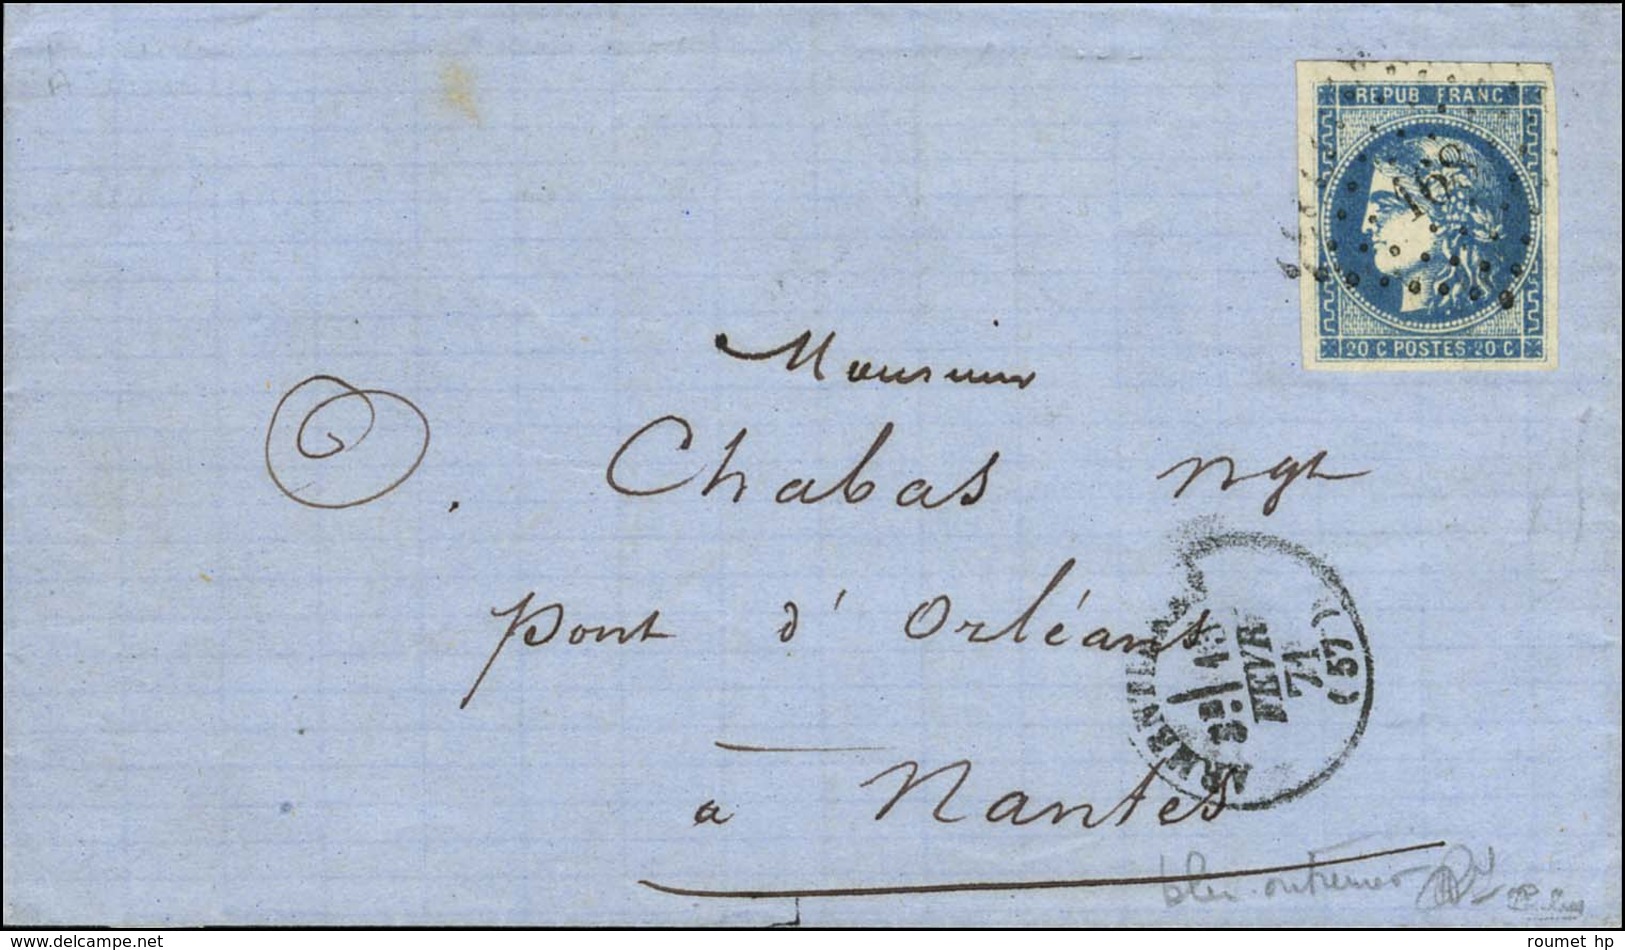 REPUB FRANC
168
20 C POSTES 20 C
Monsieur
Chabas Ngt
Pont d'Orléans
à Nantes
FEVR
71
(57)
bleu outremer
www.delcampe.net
roumet hp